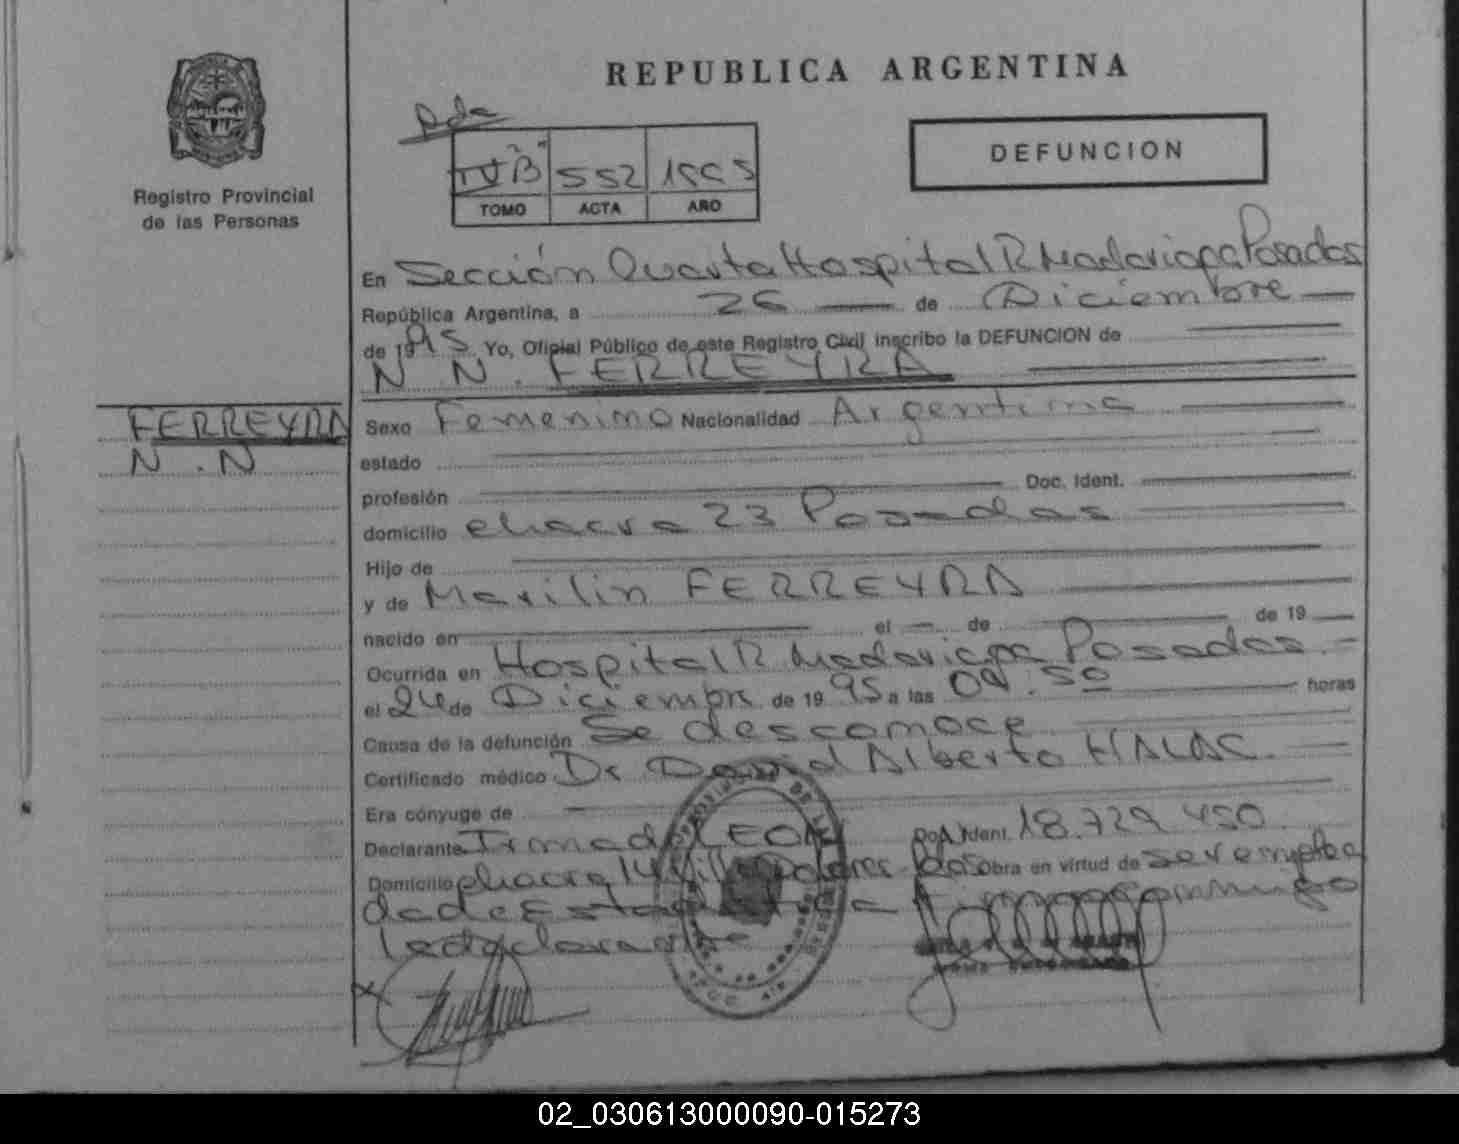 REPUBLICA ARGENTINA
Pda
DEFUNCION
IV "B" 552 1995
TOMO ACTA AÑO
Registro Provincial
de las Personas
En Sección Quarta Hospital R Madariaga Posadas
República Argentina, a 26 de Diciembre
de 1995 Yo, Oficial Público de este Registro Civil inscribo la DEFUNCION de
N N. FERREYRA
FERREYRA
N . N
Sexo Femenino Nacionalidad Argentina
estado
profesión Doc. Ident.
domicilio chacra 23 Posadas
Hijo de
y de Marilin FERREYRA
nacido en el de de 19
Ocurrida en Hospital R. Madariaga Posadas
el 24 de Diciembre de 19 95 a las 09:50 horas
Causa de la defunción Se desconoce
Certificado médico Dr David Alberto HALAC.
Era cónyuge de
Declarante Irma d LEON Doc. Ident. 18.729.450
Domicilio chacra 14 Villa Dolores Pdas Obra en virtud de ser emplea
da de Esta firma conmigo
la declarante
02_030613000090-015273